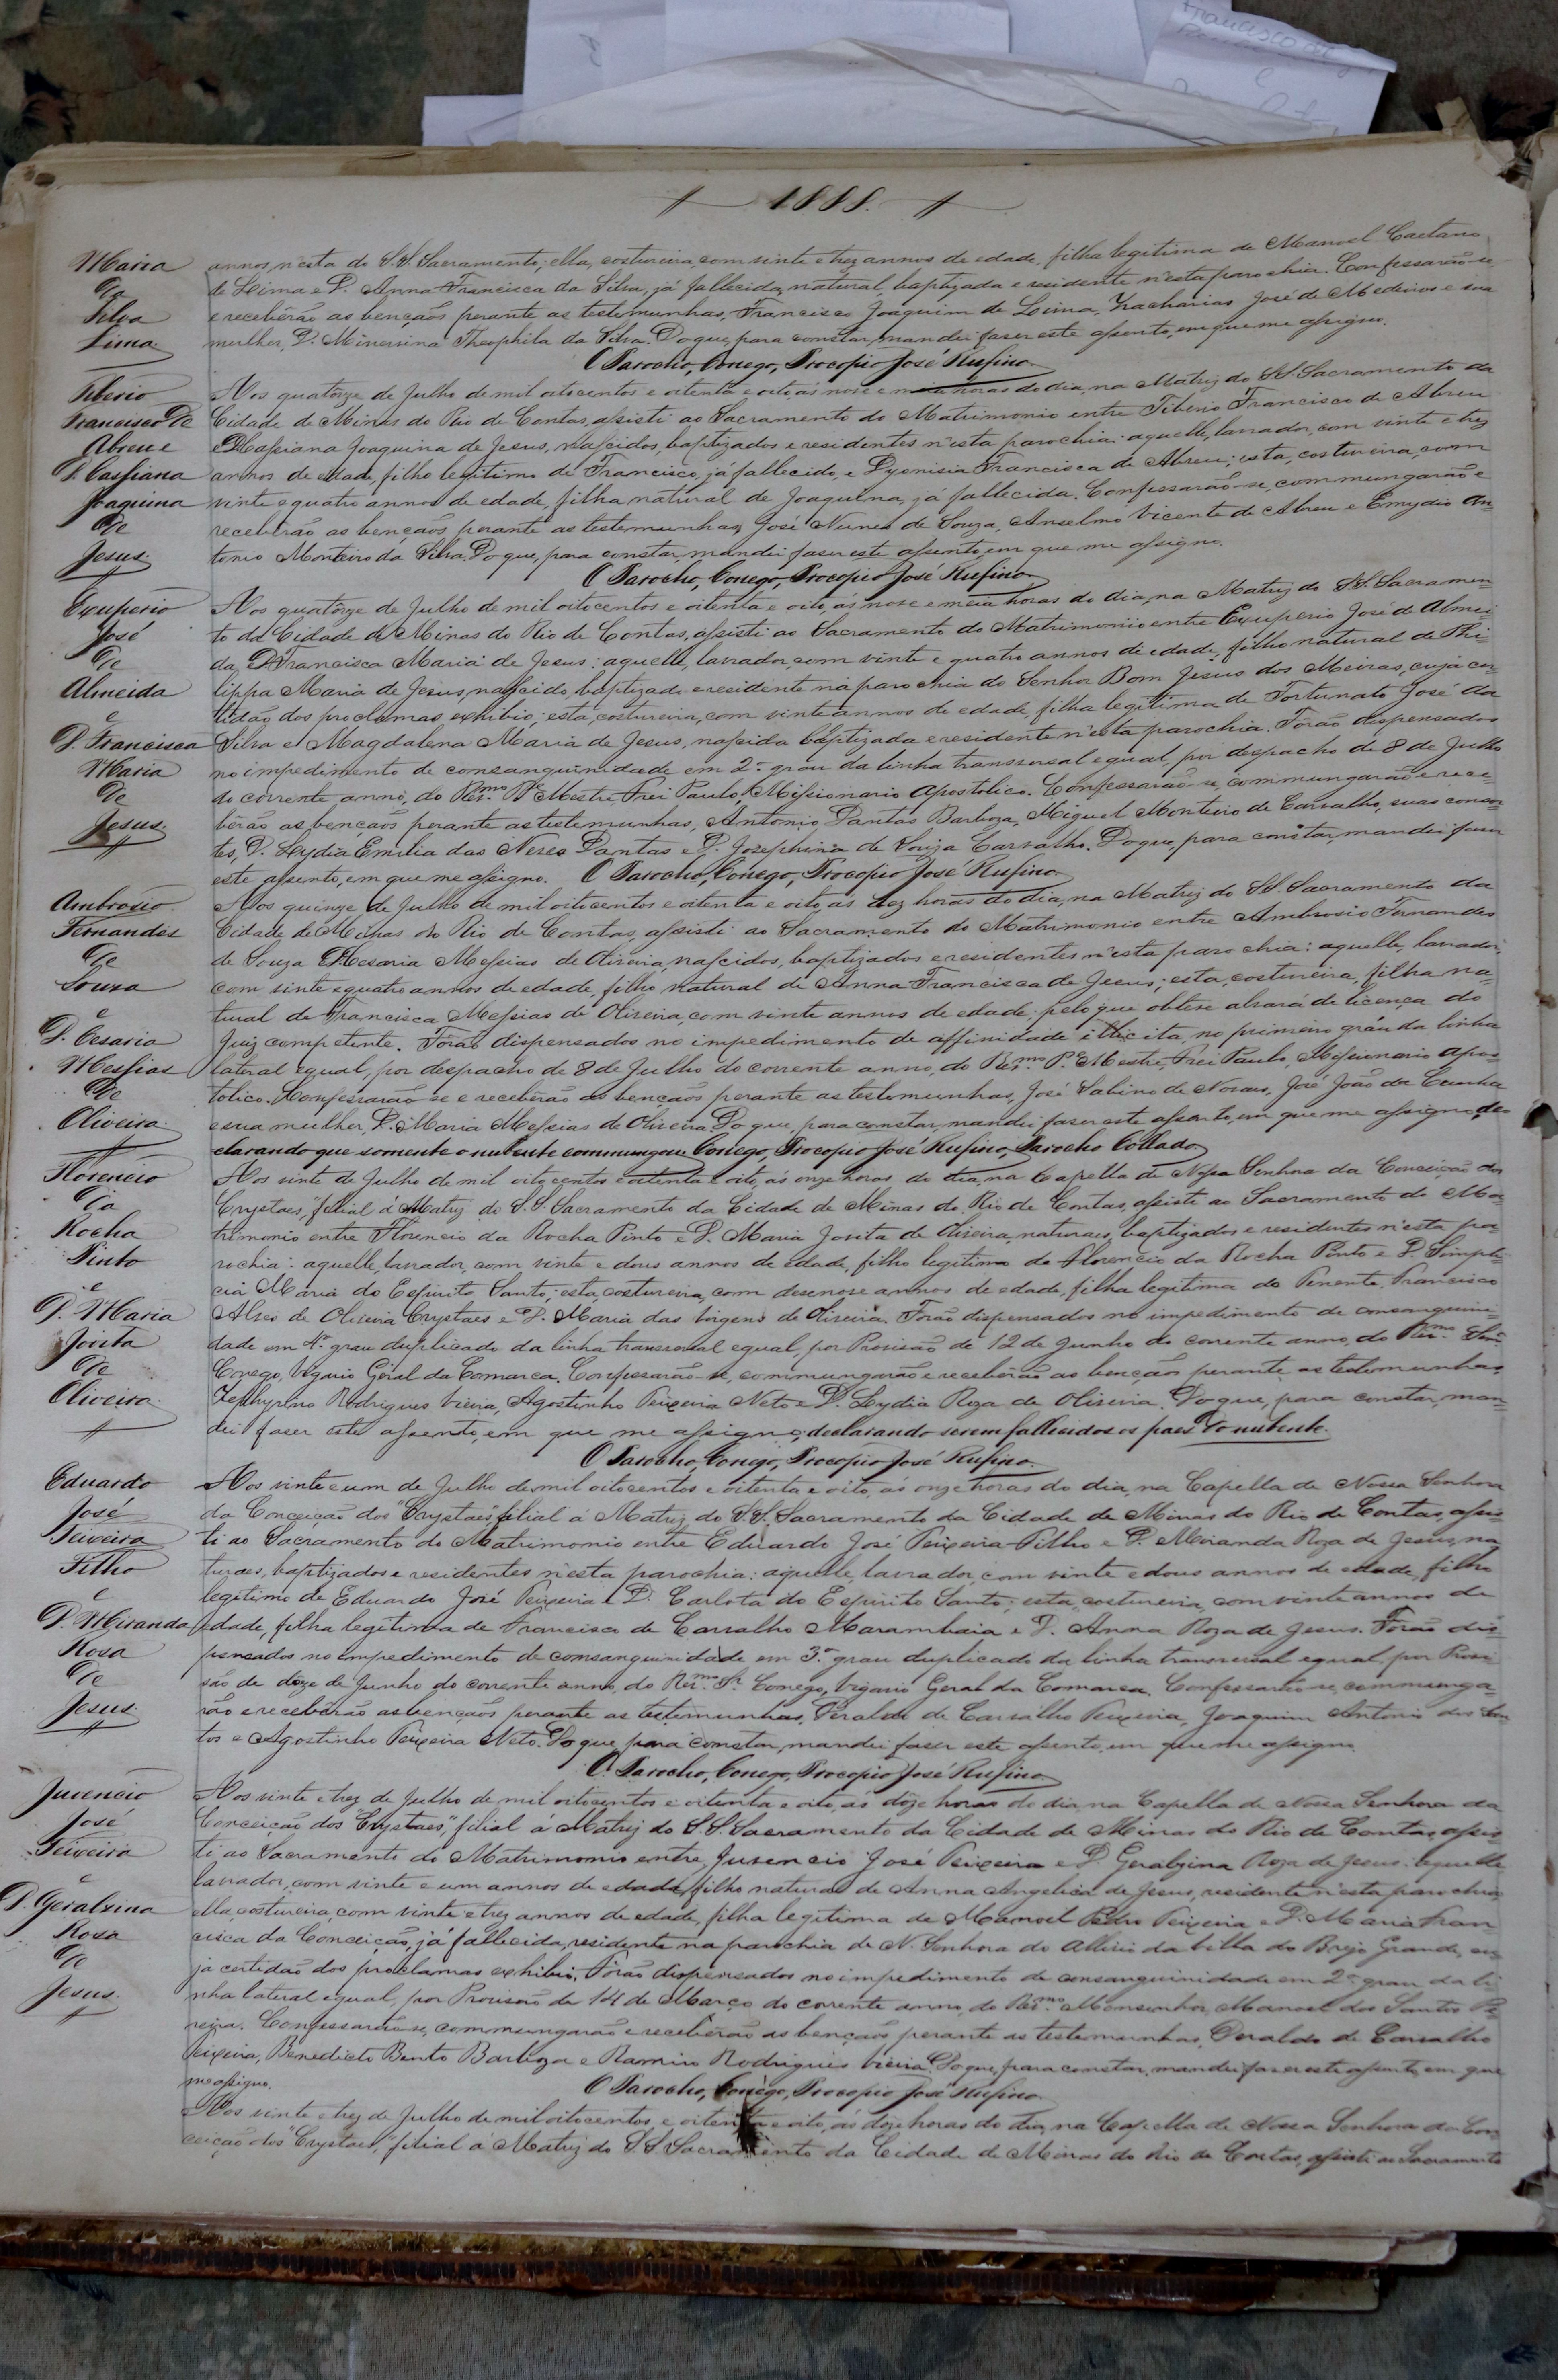 1888.
Maria
da
Silva
Lima.
annos, n'esta do S.S. Sacramento; ella, costureira, com vinte e trez annos de edade, filha legitima de Manoel Caetano
de Lima e D. Anna Francisca da Silva, já fallecida, natural baptizada e residente n'esta parochia. Confessarão-se
e receberão as bençãos perante as testemunhas, Francisco Joaquim de Lima, Zacharias José de Medeiros e sua
mulher, D. Minervina Theophila da Silva. Do que, para constar, mandei faser este assento, em que me assigno.
O Parocho, Conego, Procopio José Rufino
Tiberio
Francisco de
Abreu e
D. Cassiana
Joaquina
de
Jesus.
Aos quatorze de Julho de mil oitocentos e oitenta e oito, ás nove e meia horas do dia, na Matriz do S.S. Sacramento da
Cidade de Minas do Rio de Contas, assisti ao Sacramento do Matrimonio entre Tiberio Francisco de Abreu
e D. Cassiana Joaquina de Jesus, nascidos, baptizados e residentes n'esta parochia: aquelle, lavrador, com vinte e trez
annos de edade, filho legitimo de Francisco, já fallecido, e Dyonisia Francisca de Abreu; esta, costureira, com
vinte e quatro annos de edade, filha natural de Joaquina, já fallecida. Confessarão-se, commungarão e
receberão as bençãos perante as testemunhas, José Nunes de Souza, Anselmo Vicente de Abreu e Emydio An-
tonio Monteiro da Silva. Do que, para constar, mandei faser este assento, em que me assigno.
O Parocho, Conego, Procopio José Rufino
Exuperio
José
de
Almeida
e
D. Francisca
Maria
de
Jesus.
Aos quatorze de Julho de mil oitocentos e oitenta e oito, ás nove e meia horas do dia, na Matriz do S.S. Sacramen-
to da Cidade de Minas do Rio de Contas, assisti ao Sacramento do Matrimonio entre Exuperio José de Almei-
da e D. Francisca Maria de Jesus: aquelle, lavrador, com vinte e quatro annos de edade, filho natural de Phi-
lippa Maria de Jesus, nascido, baptizado e residente na parochia do Senhor Bom Jesus dos Meiras, cuja cer-
tidão dos proclamas exhibio; esta, costureira, com vinte annos de edade, filha legitima de Fortunato José da
Silva e Magdalena Maria de Jesus, nascida baptizada e residente n'esta parochia. Forão dispensados
no impedimento de consanguinidade em 2º grau da linha transversal egual, por despacho de 8 de Julho
do corrente anno, do Rev.mo P.e Mestre Frei Paulo, Missionario Apostolico. Confessarão-se, commungarão e rece-
berão as bençãos perante as testemunhas, Antonio Dantas Barboza, Miguel Monteiro de Carvalho, suas consor-
tes, D. Lydia Emilia das Neves Dantas e D. Josephina de Souza Carvalho. Do que, para constar, mandei faser
este assento, em que me assigno. O Parocho, Conego, Procopio José Rufino
Ambrosio
Fernandes
de
Souza
e
D. Cesaria
Messias
de
Oliveira.
Aos quinze de Julho de mil oitocentos e oitenta e oito, ás trez horas do dia, na Matriz do S.S. Sacramento da
Cidade de Minas do Rio de Contas, assisti ao Sacramento do Matrimonio entre Ambrosio Fernandes
de Souza e D. Cesaria Messias de Oliveira, nascidos, baptizados e residentes n'esta parochia: aquelle, lavrador,
com vinte e quatro annos de edade, filho natural de Anna Francisca de Jesus; esta, costureira, filha na-
tural de Francisca Messias de Oliveira, com vinte annos de edade, pelo que obteve alvará de licença do
Juiz competente. Forão dispensados no impedimento de affinidade illicita, no primeiro gráu da linha
lateral egual, por despacho de 8 de Julho do corrente anno, do Rev.mo P.e Mestre, Frei Paulo, Missionario Apos-
tolico. Confessarão-se e receberão as bençãos perante as testemunhas, José Sabino de Novaes, José João da Cunha
e sua mulher, D. Maria Messias de Oliveira. Do que, para constar, mandei faser este assento, em que me assigno, de-
clarando que somente o nubente commungou. Conego, Procopio José Rufino, Parocho Collado
Florencio
da
Rocha
Pinto
e
D. Maria
Jovita
de
Oliveira.
Aos vinte de Julho de mil oitocentos e oitenta e oito, ás onze horas do dia, na Capella de Nossa Senhora da Conceição dos
"Crystaes", filial á Matriz do S.S. Sacramento da Cidade de Minas do Rio de Contas, assisti ao Sacramento do Ma-
trimonio entre Florencio da Rocha Pinto e D. Maria Jovita de Oliveira, naturaes, baptizados e residentes n'esta pa-
rochia: aquelle, lavrador, com vinte e dous annos de edade, filho legitimo de Florencio da Rocha Pinto e D. Simpli-
cia Maria do Espirito Santo; esta, costureira, com desenove annos de edade, filha legitima do Tenente Francisco
Alves de Oliveira Crystaes e D. Maria das Virgens de Oliveira. Forão dispensados no impedimento de consanguini-
dade em 4º grau duplicado da linha transversal egual, por Provisão de 12 de Junho do corrente anno, do Rev.mo Snr.
Conego, Vigario Geral da Comarca. Confessarão-se, commungarão e receberão as bençãos perante as testemunhas
Zephyrino Rodrigues Vieira, Agostinho Teixeira Neto e D. Lydia Roza de Oliveira. Do que, para constar, man-
dei faser este assento, em que me assigno, declarando serem fallecidos os paes do nubente.
O Parocho, Conego, Procopio José Rufino.
Eduardo
José
Teixeira
Filho
e
D. Miranda
Rosa
de
Jesus.
Aos vinte e um de Julho de mil oitocentos e oitenta e oito, ás onze horas do dia, na Capella de Nossa Senhora
da Conceição dos "Crystaes", filial á Matriz do S.S. Sacramento da Cidade de Minas do Rio de Contas, assis-
ti ao Sacramento do Matrimonio entre Eduardo José Teixeira Filho e D. Miranda Roza de Jesus, na-
turaes, baptizados e residentes n'esta parochia: aquelle, lavrador, com vinte e dous annos de edade, filho
legitimo de Eduardo José Teixeira e D. Carlota do Espirito Santo; esta, costureira, com vinte annos de
edade, filha legitima de Francisco de Carvalho Marambaia e D. Anna Roza de Jesus. Forão dis-
pensados no impedimento de consanguinidade em 3º grau duplicado da linha transversal egual, por Provi-
são de doze de Junho do corrente anno, do Rev.mo Sr. Conego, Vigario Geral da Comarca. Confessarão-se, communga-
rão e receberão as bençãos perante as testemunhas, Peraldo de Carvalho Teixeira, Joaquim Antonio dos San-
tos e Agostinho Teixeira Neto. Do que, para constar, mandei faser este assento, em que me assigno.
O Parocho, Conego, Procopio José Rufino
Juvencio
José
Teixeira
e
D. Geralzina
Rosa
de
Jesus.
Aos vinte e trez de Julho de mil oitocentos e oitenta e oito, ás doze horas do dia, na Capella de Nossa Senhora da
Conceição dos "Crystaes", filial á Matriz do S.S. Sacramento da Cidade de Minas do Rio de Contas, assis-
ti ao Sacramento do Matrimonio entre Juvencio José Teixeira e D. Geralzina Roza de Jesus: aquelle
lavrador, com vinte e um annos de edade, filho natural de Anna Angelica de Jesus, residente n'esta parochia;
ella, costureira, com vinte e trez annos de edade, filha legitima de Manoel Pedro Teixeira e D. Maria Fran-
cisca da Conceição, já fallecida, residente na parochia de N. Senhora do Allivio da Villa do Brejo Grande, cu-
ja certidão dos proclamas exhibio. Forão dispensados no impedimento de consanguinidade em 2º grau da li-
nha lateral egual, por Provisão de 14 de Março do corrente anno, do Rev.mo Monsenhor, Manoel dos Santos Pe-
reira. Confessarão-se, commungarão e receberão as bençãos perante as testemunhas, Deraldo de Carvalho
Teixeira, Benedicto Bento Barboza e Ramiro Rodrigues Vieira. Do que, para constar, mandei faser este assento, em que
me assigno. O Parocho, Conego, Procopio José Rufino
Aos vinte e trez de Julho de mil oitocentos e oitenta e oito, ás doze horas do dia, na Capella de Nossa Senhora da Con-
ceição dos "Crystaes", filial á Matriz do S.S. Sacramento da Cidade de Minas do Rio de Contas, assisti ao Sacramento